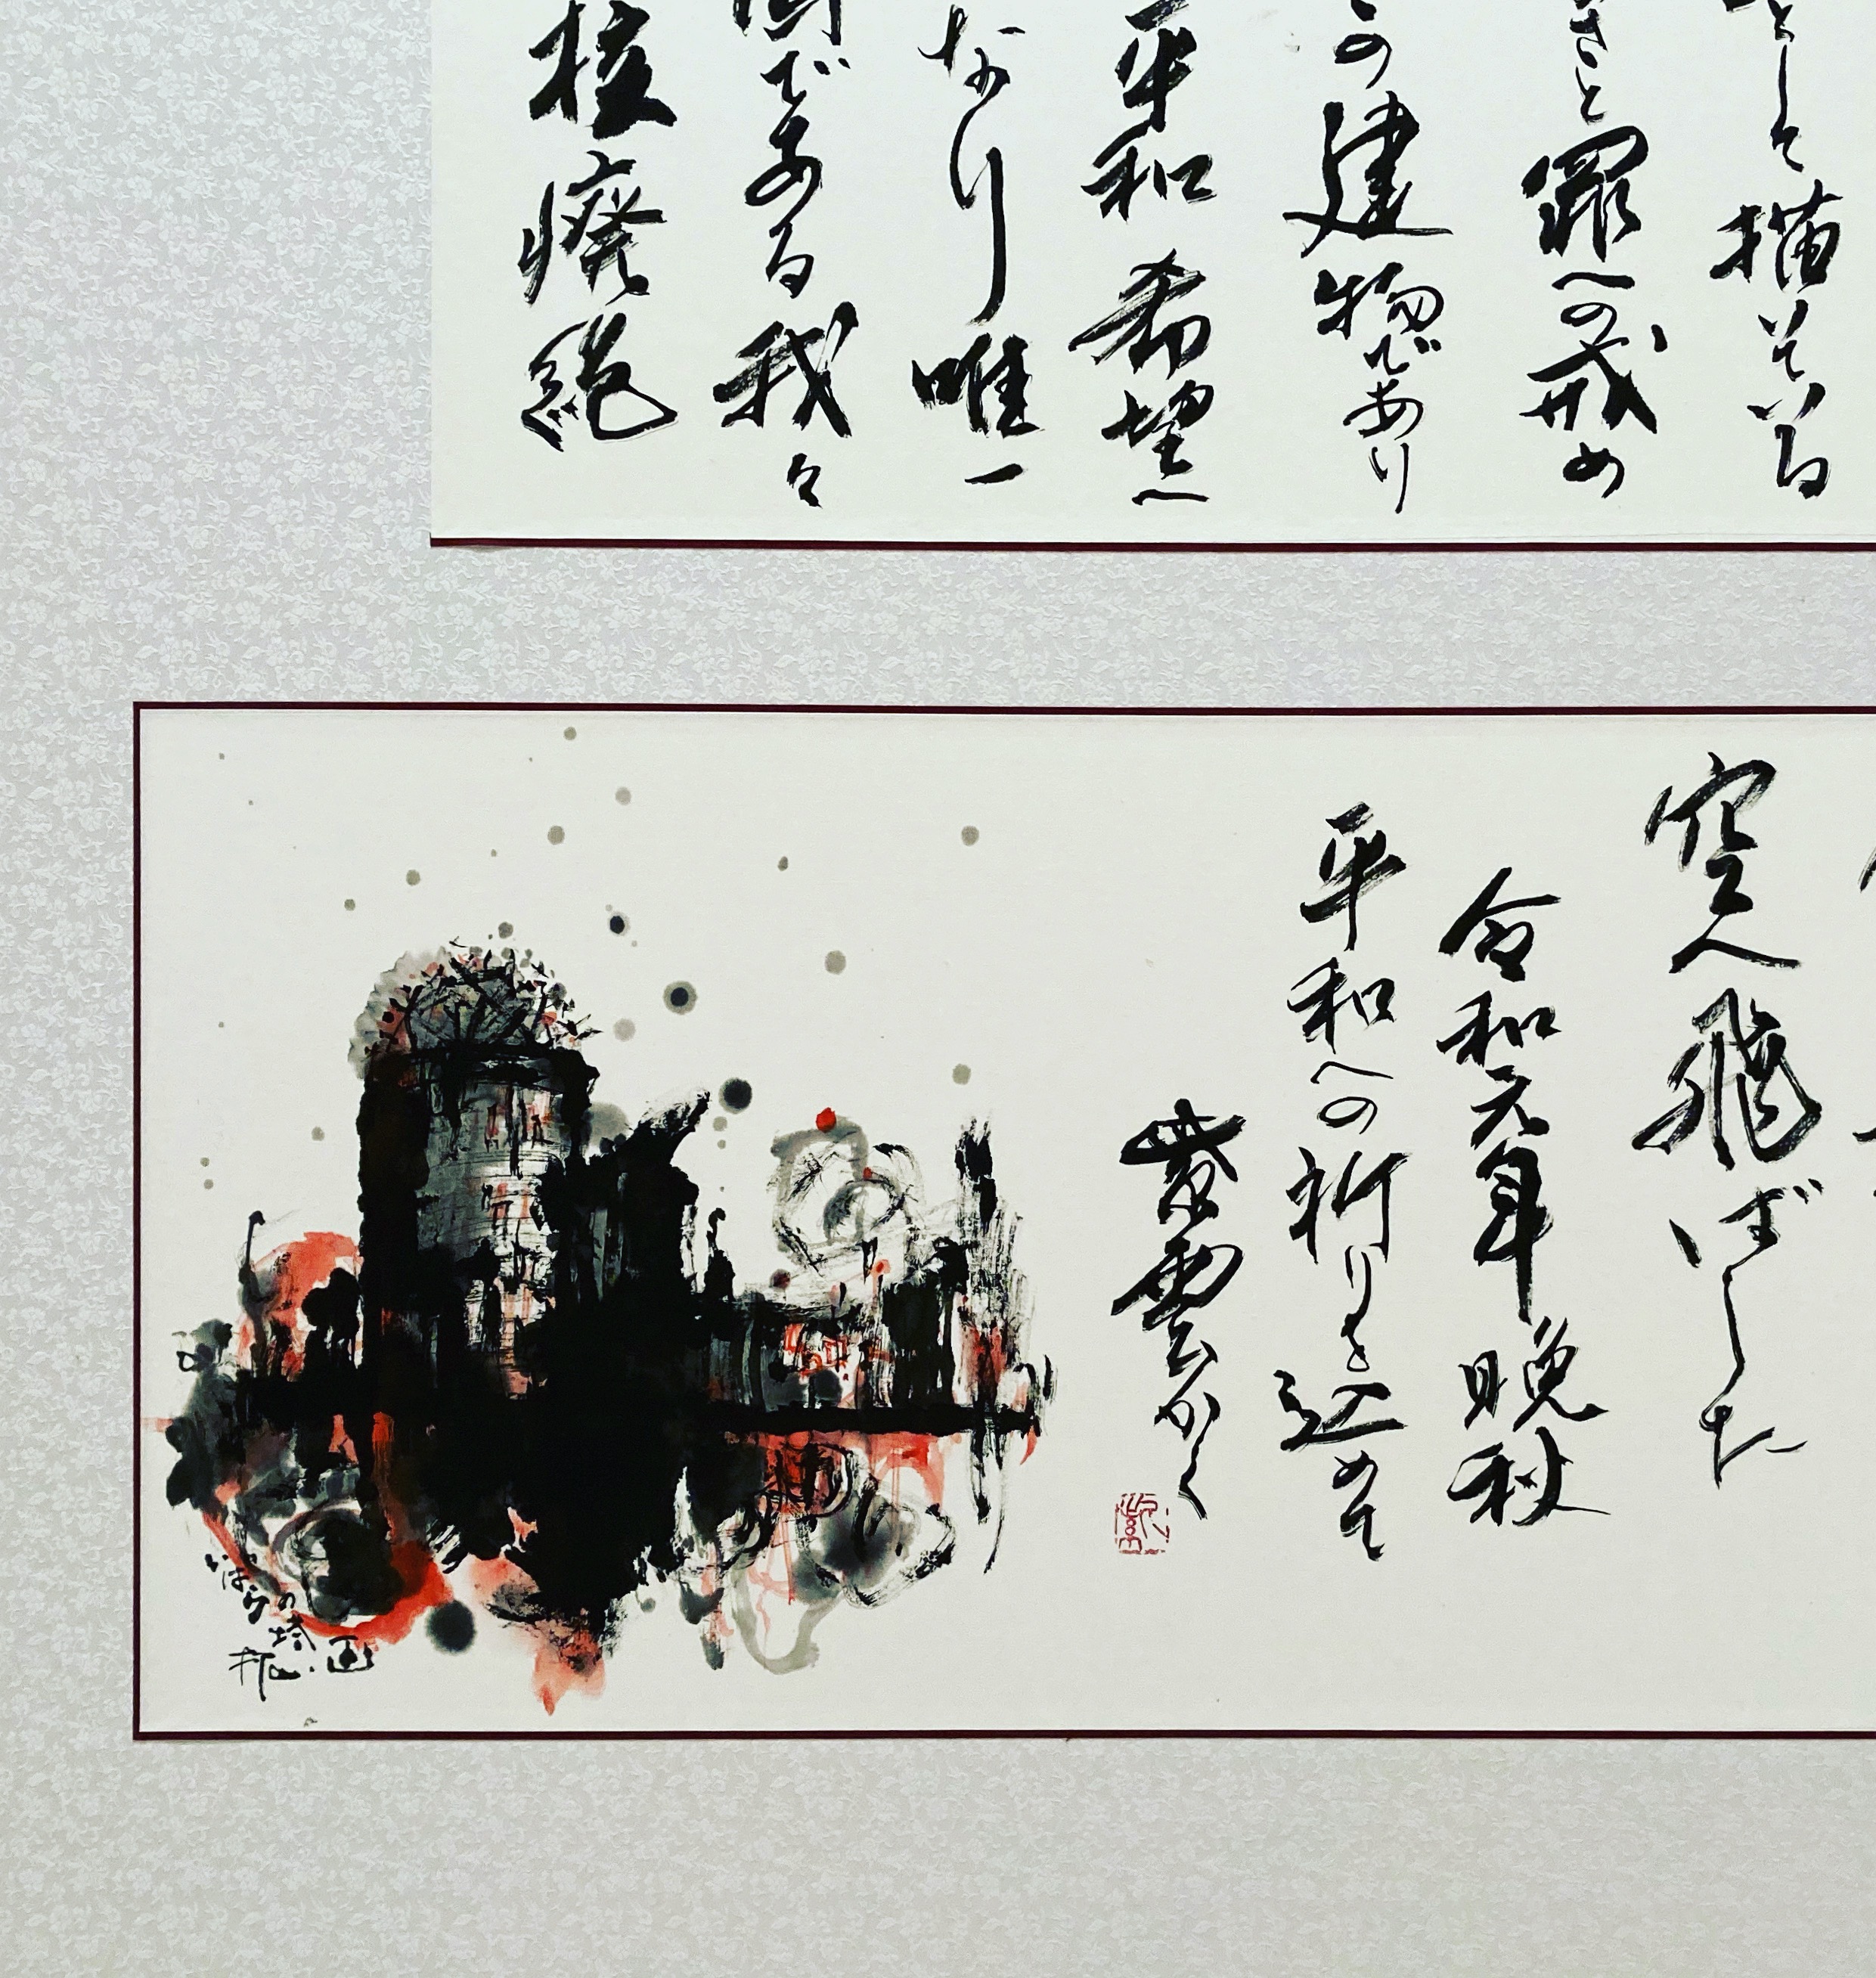 として描いている
さと罪への戒め
の建物であり
平和希望へ
なり唯一
である我々
核廃絶
空へ飛ばした
令和元年晩秋
平和への祈りを込めて
紫雲かく
いばらの塔
画